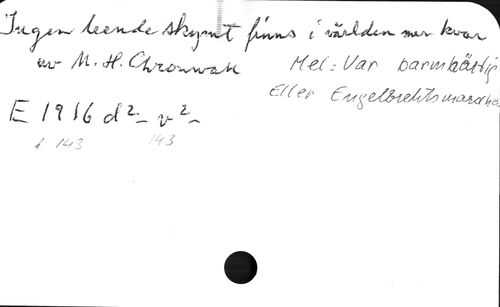 Ingen leende skymt finns i världen mer kvar
av M. H. Chronwak
Mel: Var barmhärtig
Eller Engelbrektsmarschen
E 1916 d²- v²-
h 143 143